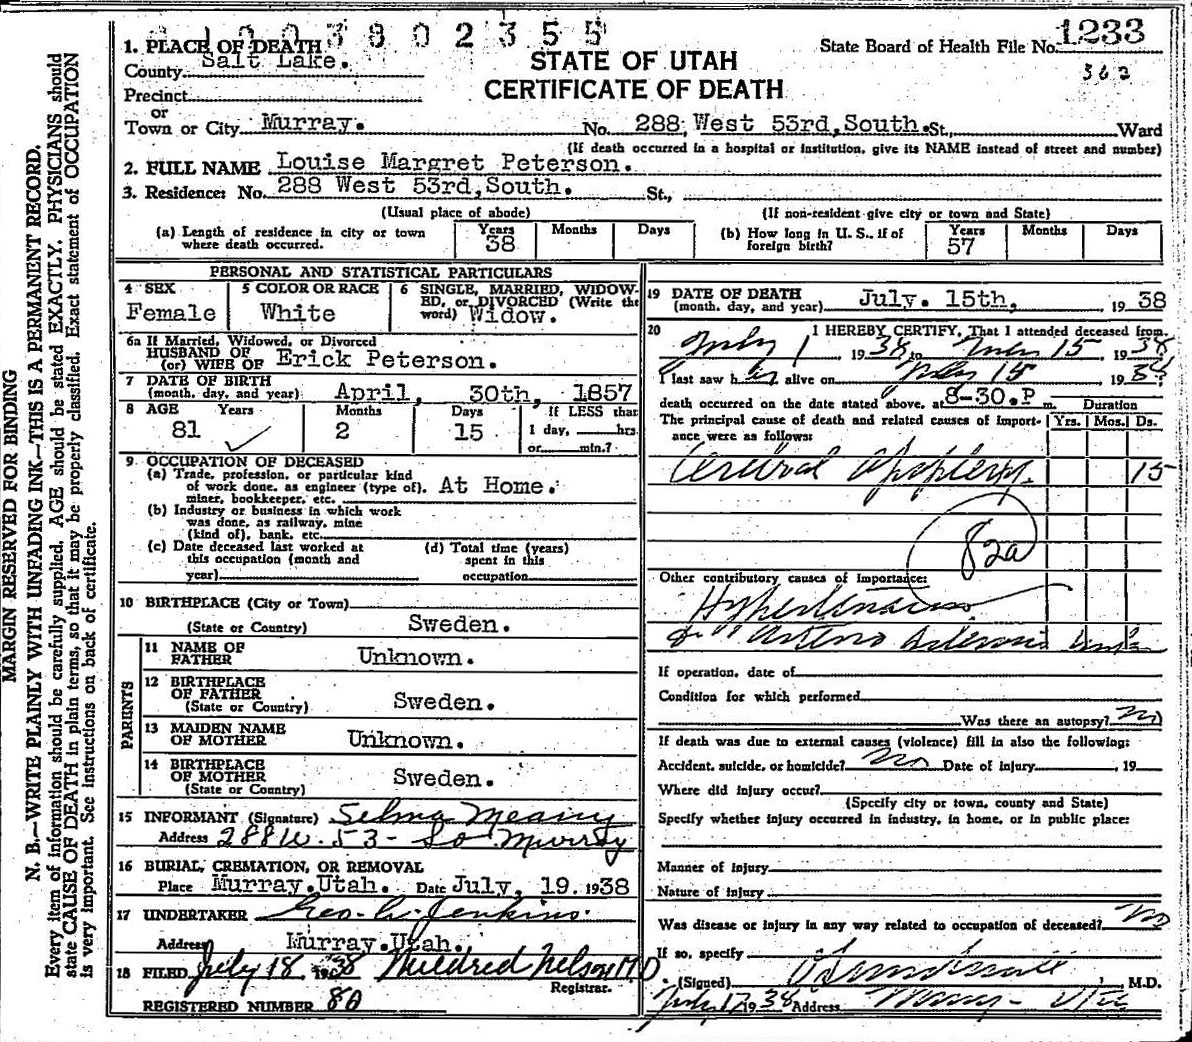 MARGIN RESERVED FOR BINDING
N. B.—WRITE PLAINLY WITH UNFADING INK—THIS IS A PERMANENT RECORD.
Every item of information should be carefully supplied. AGE should be stated EXACTLY. PHYSICIANS should
state CAUSE OF DEATH in plain terms, so that it may be properly classified. Exact statement of OCCUPATION
is very important. See instructions on back of certificate.
003802355
State Board of Health File No. 1233
362
STATE OF UTAH
CERTIFICATE OF DEATH
1. PLACE OF DEATH
County Salt Lake.
Precinct
or
Town or City Murray. No. 288, West 53rd, South. St., Ward
(If death occurred in a hospital or institution, give its NAME instead of street and number)
2. FULL NAME Louise Margret Peterson.
3. Residence: No. 288 West 53rd, South. St.,
(Usual place of abode) (If non-resident give city or town and State)
(a) Length of residence in city or town where death occurred. Years 38 Months Days
(b) How long in U. S., if of foreign birth? Years 57 Months Days
PERSONAL AND STATISTICAL PARTICULARS
4 SEX Female
5 COLOR OR RACE White
6 SINGLE, MARRIED, WIDOWED, or DIVORCED (Write the word) Widow.
6a If Married, Widowed, or Divorced
HUSBAND OF
(or) WIFE OF Erick Peterson.
7 DATE OF BIRTH
(month, day, and year) April, 30th, 1857
8 AGE Years 81 Months 2 Days 15 If LESS than 1 day, hrs. or min.?
9 OCCUPATION OF DECEASED
(a) Trade, profession, or particular kind of work done, as engineer (type of), miner, bookkeeper, etc. At Home.
(b) Industry or business in which work was done, as railway, mine (kind of), bank, etc.
(c) Date deceased last worked at this occupation (month and year)
(d) Total time (years) spent in this occupation
10 BIRTHPLACE (City or Town)
(State or Country) Sweden.
PARENTS
11 NAME OF FATHER Unknown.
12 BIRTHPLACE OF FATHER
(State or Country) Sweden.
13 MAIDEN NAME OF MOTHER Unknown.
14 BIRTHPLACE OF MOTHER
(State or Country) Sweden.
15 INFORMANT (Signature) Selma
Address 288 W. 53 - So Murray
16 BURIAL, CREMATION, OR REMOVAL
Place Murray. Utah. Date July, 19. 1938
17 UNDERTAKER Geo. W. Jenkins.
Address Murray. Utah.
18 FILED July 18 1938 Mildred Nelson M D
Registrar.
REGISTERED NUMBER 80
19 DATE OF DEATH
(month, day, and year) July. 15th, 1938
20 I HEREBY CERTIFY, That I attended deceased from
July 1 1938 to July 15, 1938
I last saw her alive on July 15 1938
death occurred on the date stated above, at 8-30.P m. Duration
The principal cause of death and related causes of importance were as follows: Yrs. Mos. Ds.
Cerebral Apoplexy. 15
82a
Other contributory causes of importance:
Hypertension
Arterio
If operation, date of
Condition for which performed
Was there an autopsy? No
If death was due to external causes (violence) fill in also the following:
Accident, suicide, or homicide? No Date of injury , 19
Where did injury occur?
(Specify city or town, county and State)
Specify whether injury occurred in industry, in home, or in public place:
Manner of injury
Nature of injury
Was disease or injury in any way related to occupation of deceased? No
If so, specify
(Signed) , M.D.
July 17 1938 Address Murray - Utah